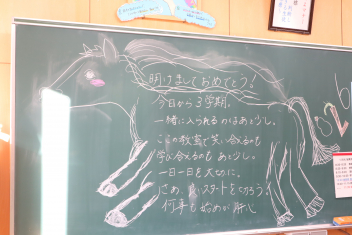 明けましておめでとう!
今日から3学期。
一緒に入られるのはあと少し。
この教室で笑い合えるのも
学び合えるのも あと少し。
一日一日を大切に。
さあ、良いスタートを切ろう!
何事も始めが肝心